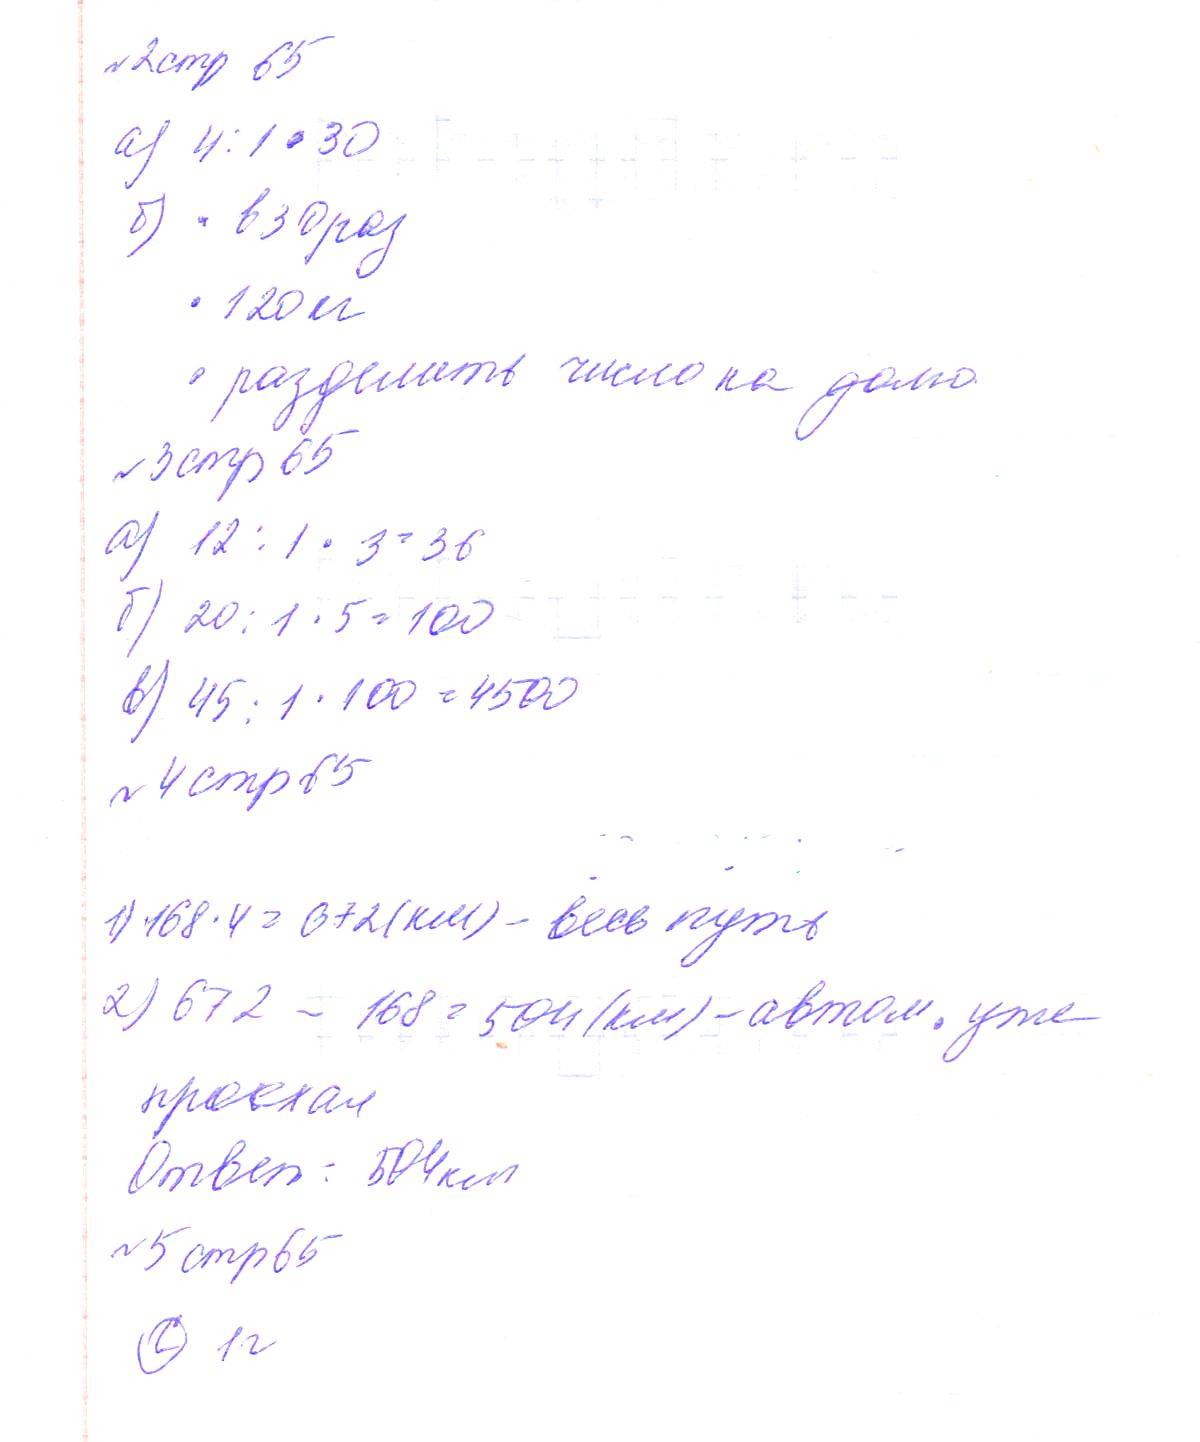 №2 стр 65
а) 4 : 1 • 30
б) • в 30 раз
• 120 кг
• разделить число на долю
№3 стр 65
а) 12 : 1 · 3 = 36
б) 20 : 1 · 5 = 100
в) 45 : 1 · 100 = 4500
№4 стр 65
1) 168 · 4 = 672 (км) – весь путь
2) 672 – 168 = 504 (км) – автом. уже
проехал
Ответ: 504 км
№5 стр 65
С 1г